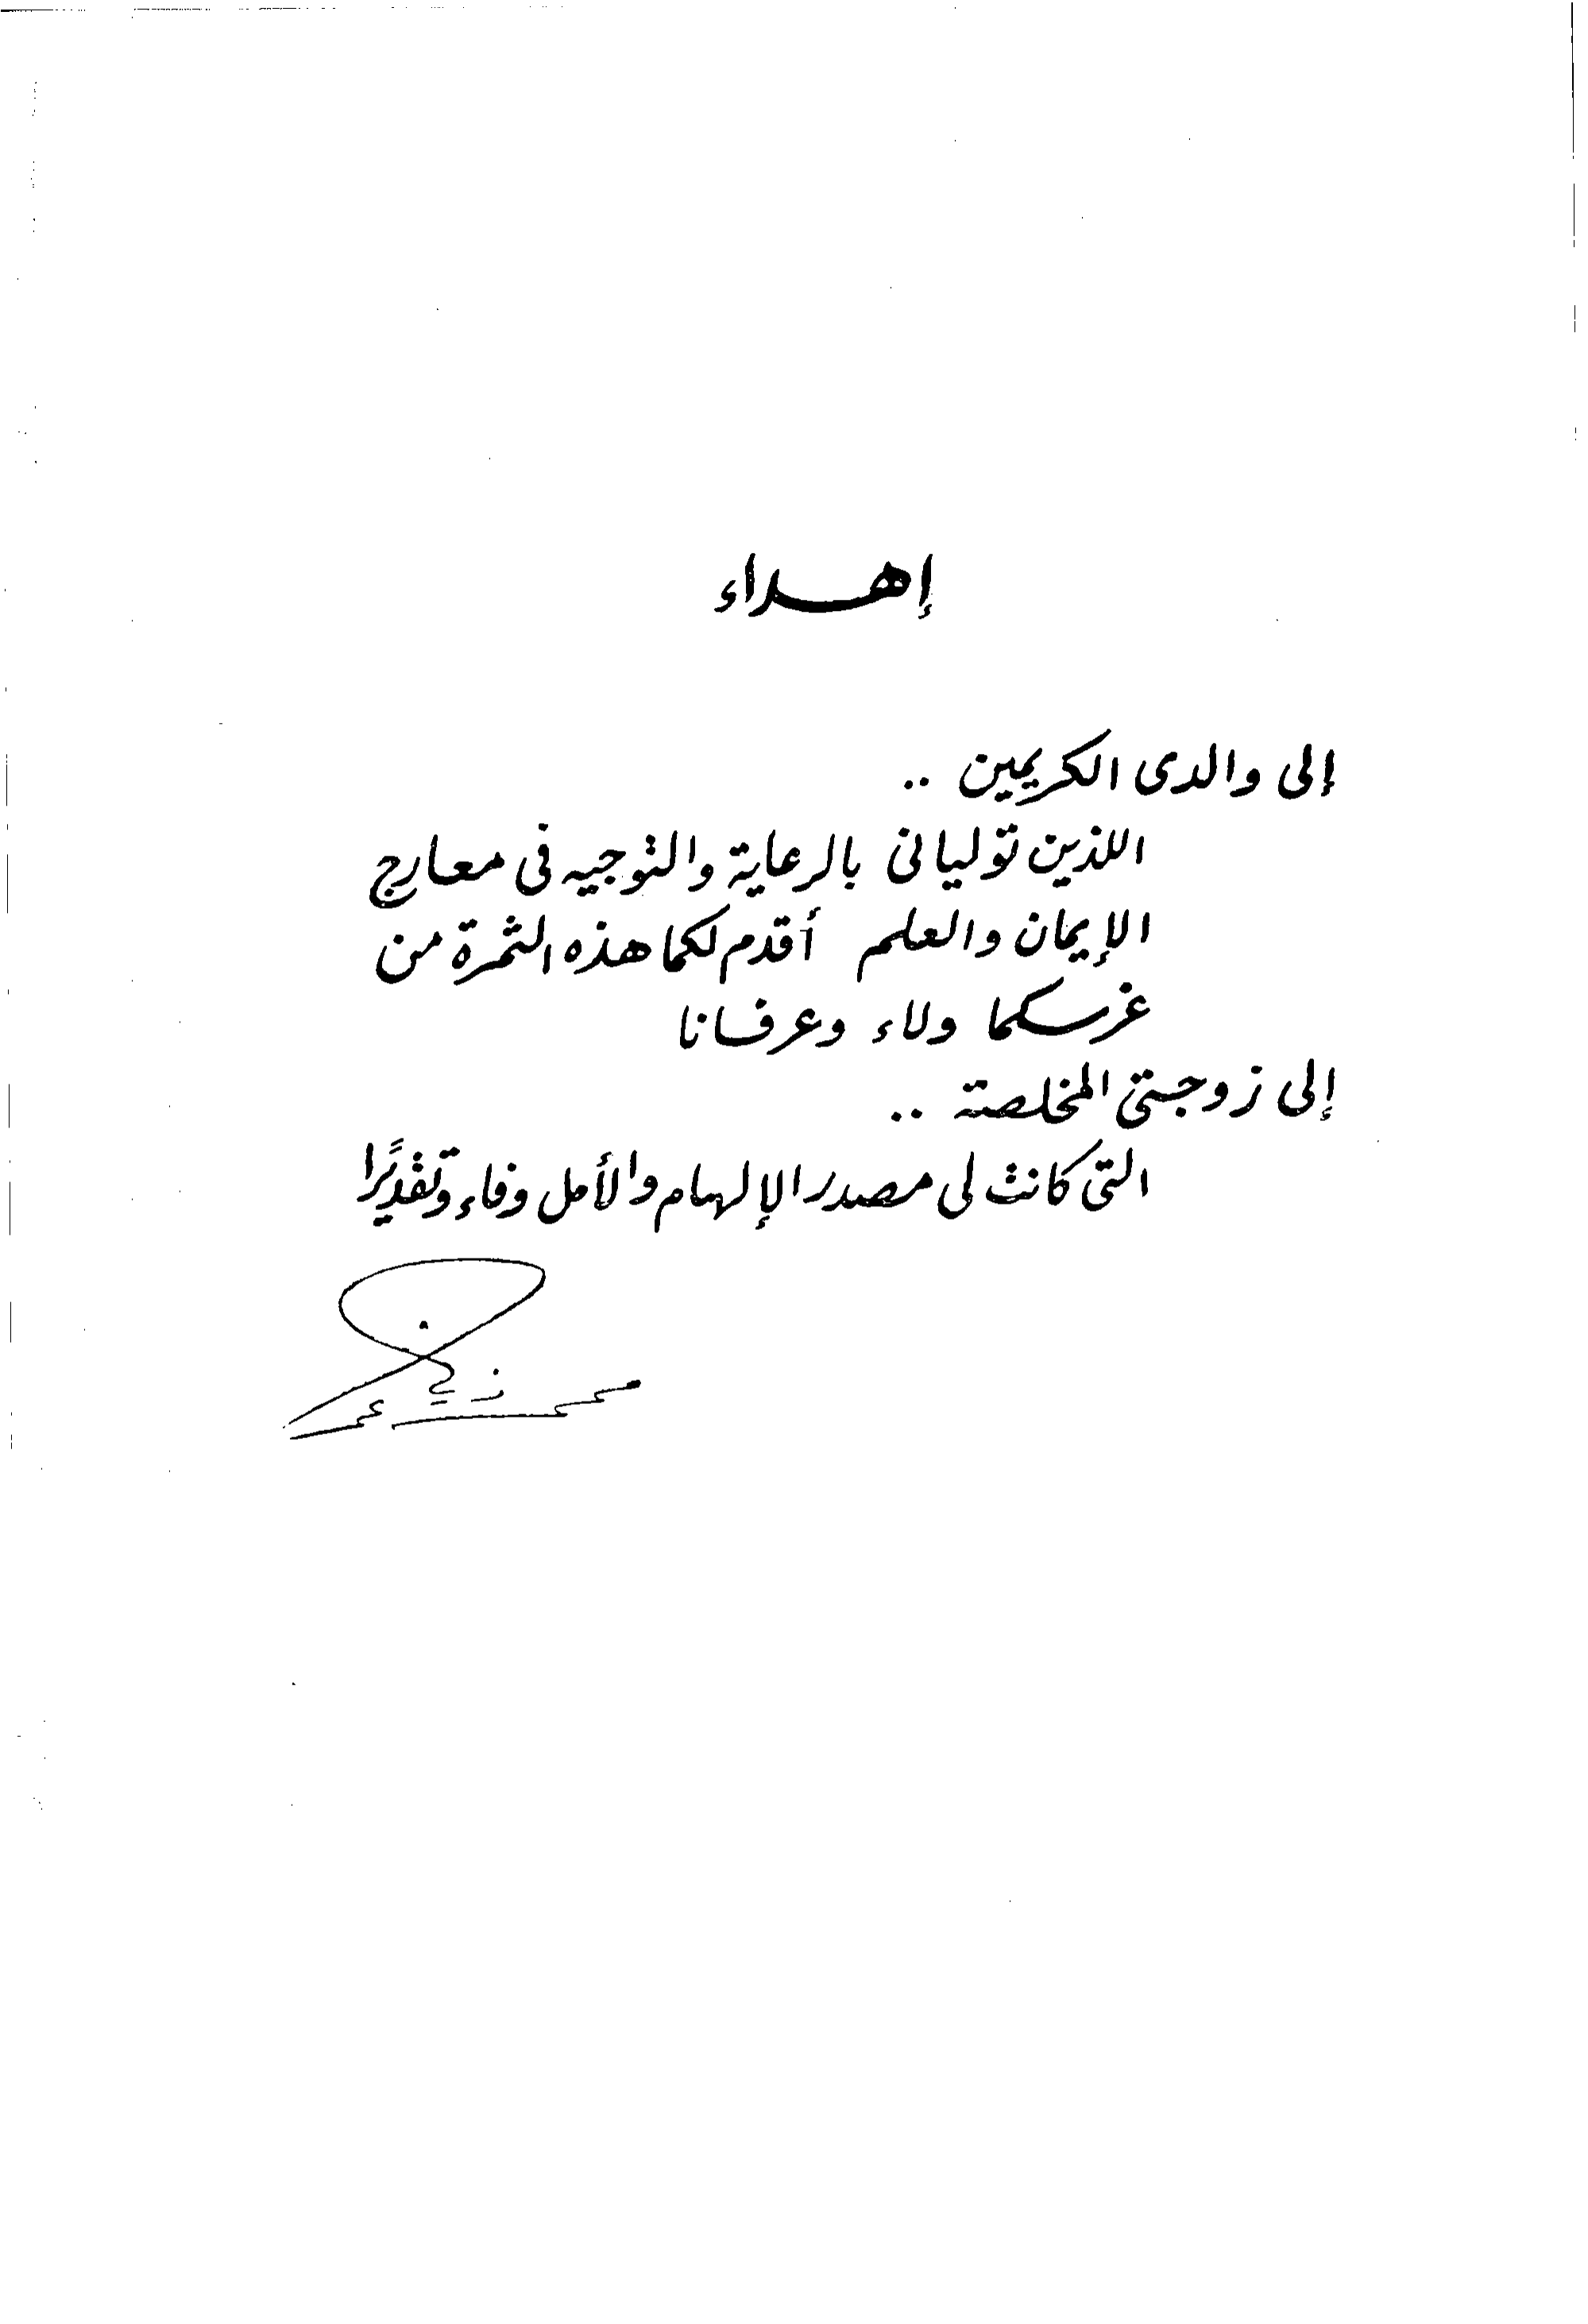 إهداء
إلى والدى الكريمين ..
اللذين توليانى بالرعاية والتوجيه فى معارج
الإيمان والعلم أقدم لكما هذه الثمرة من
غرسكما ولاء وعرفانا
إلى زوجتى المخلصة ..
التى كانت لى مصدر الإلهام والأمل وفاء وتقديرًا